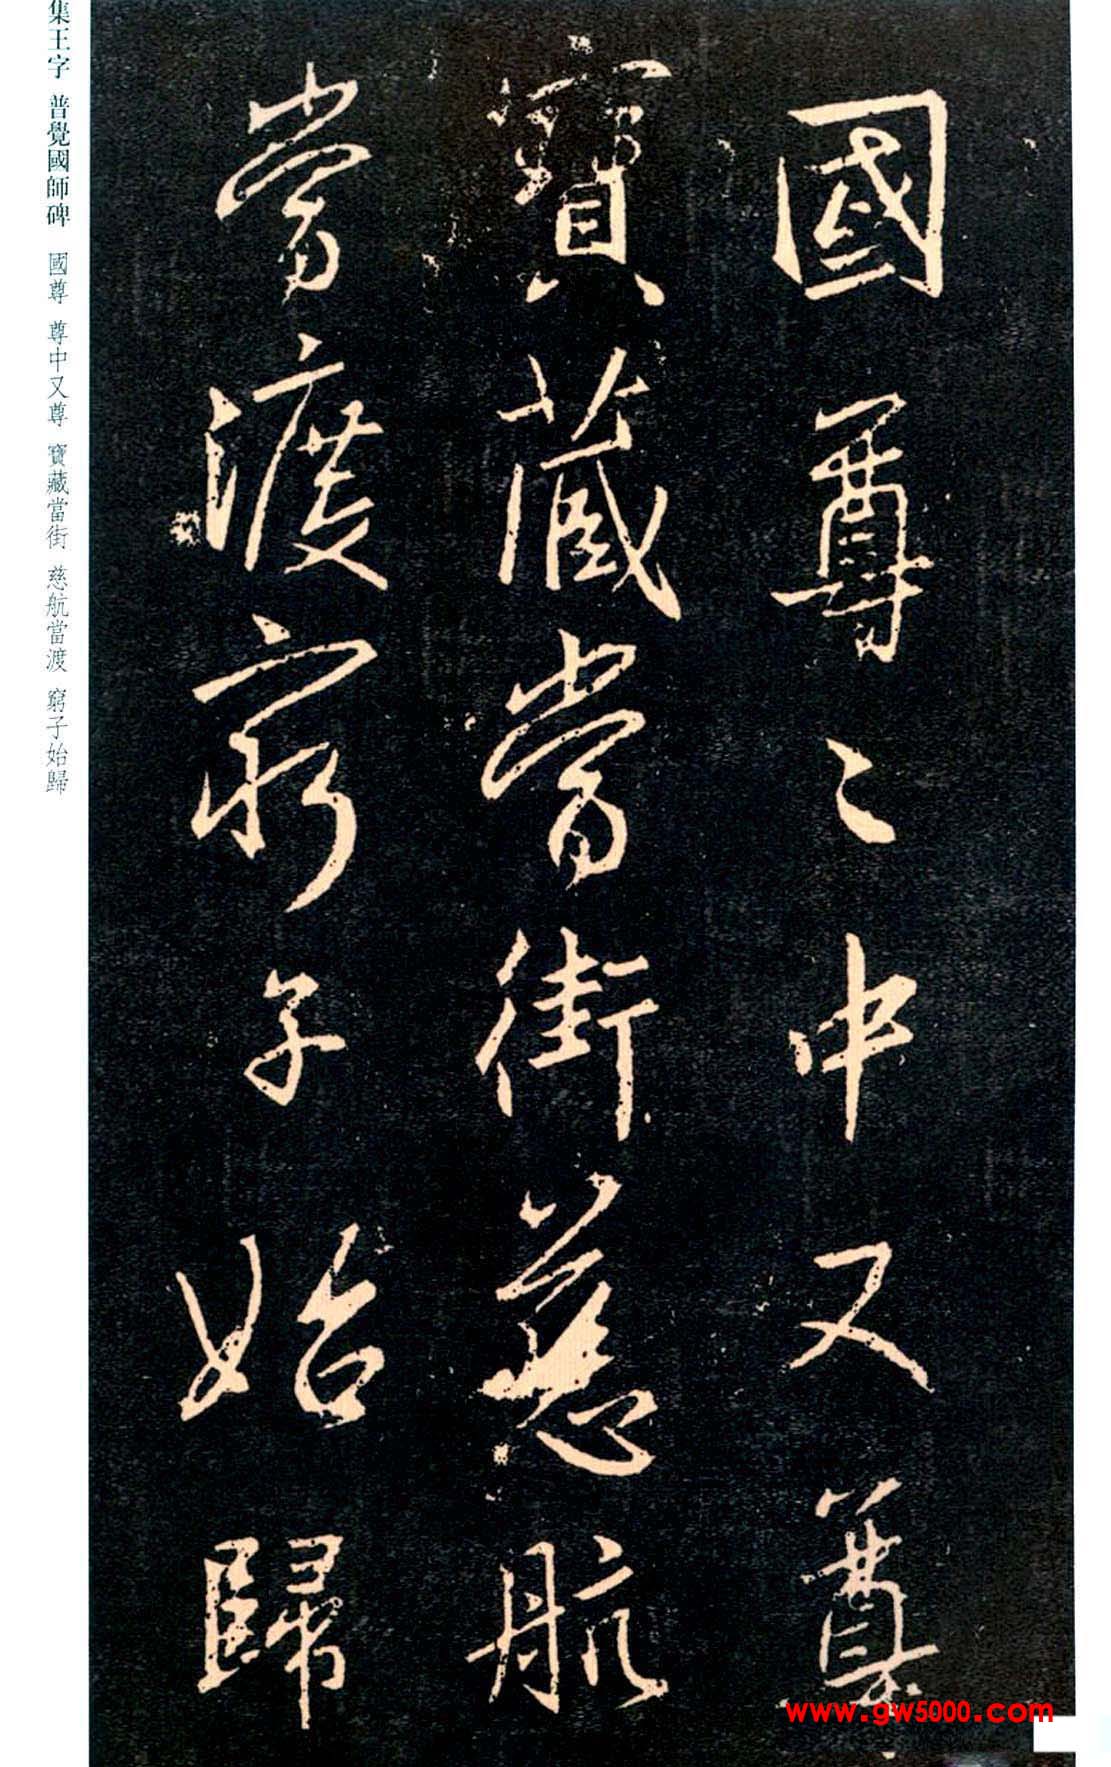 國尊〻中又尊
寶藏當街慈航
當渡窮子始歸
集王字 普覺國師碑 國尊 尊中又尊 寶藏當街 慈航當渡 窮子始歸
www.gw5000.com